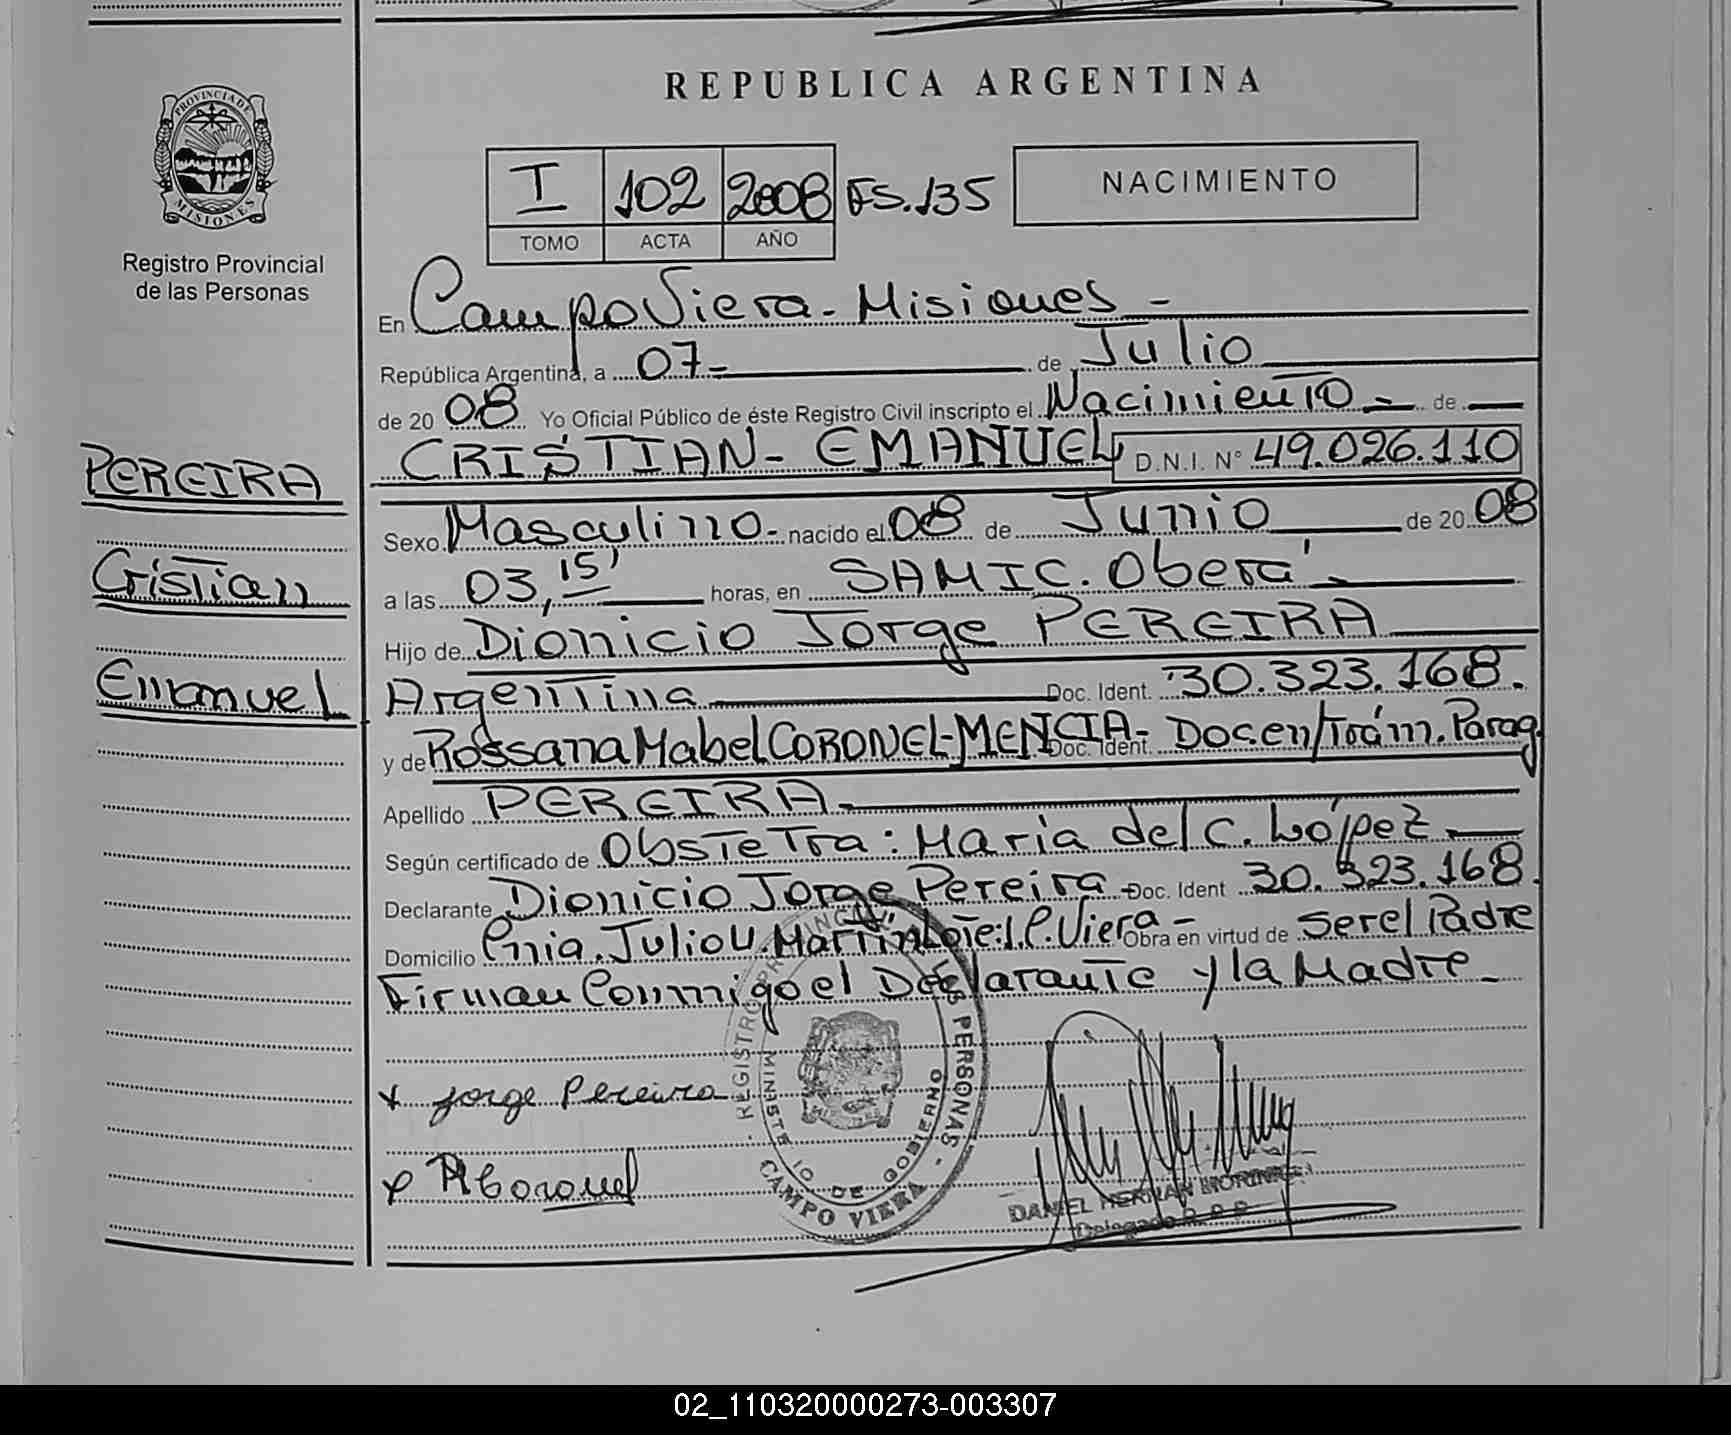 REPUBLICA ARGENTINA
PROVINCIA DE
MISIONES
Registro Provincial
de las Personas
I 102 2008 FS.135
TOMO ACTA AÑO
NACIMIENTO
En Campo Viera - Misiones -
República Argentina, a 07- de Julio
de 20 08 Yo Oficial Público de éste Registro Civil inscripto el Nacimiento - de
CRISTIAN - EMANUEL D.N.I. N° 49.026.110
PEREIRA
Cristian
Emanuel
Sexo Masculino - nacido el 08 de Junio de 20 08
a las 03,15' horas, en SAMIC. Oberá -
Hijo de Dionicio Jorge PEREIRA
Argentina Doc. Ident. 30.323.168.
y de Rossana Mabel CORONEL-MENCIA- Doc. Ident. Doc.en/Trám.Parag.
Apellido PEREIRA
Según certificado de Obstetra: María del C. López
Declarante Dionicio Jorge Pereira - Doc. Ident 30.323.168.
Domicilio Julio U. Martin C. Viera - Obra en virtud de ser el Padre
Firman Conmigo el Declarante y la Madre -
x Jorge Pereira
x RCoronel
REGISTRO PROVINCIAL DE LAS PERSONAS -
MINISTERIO DE GOBIERNO
CAMPO VIERA
DANIEL HERNAN
Delegado R. P. P.
02_110320000273-003307